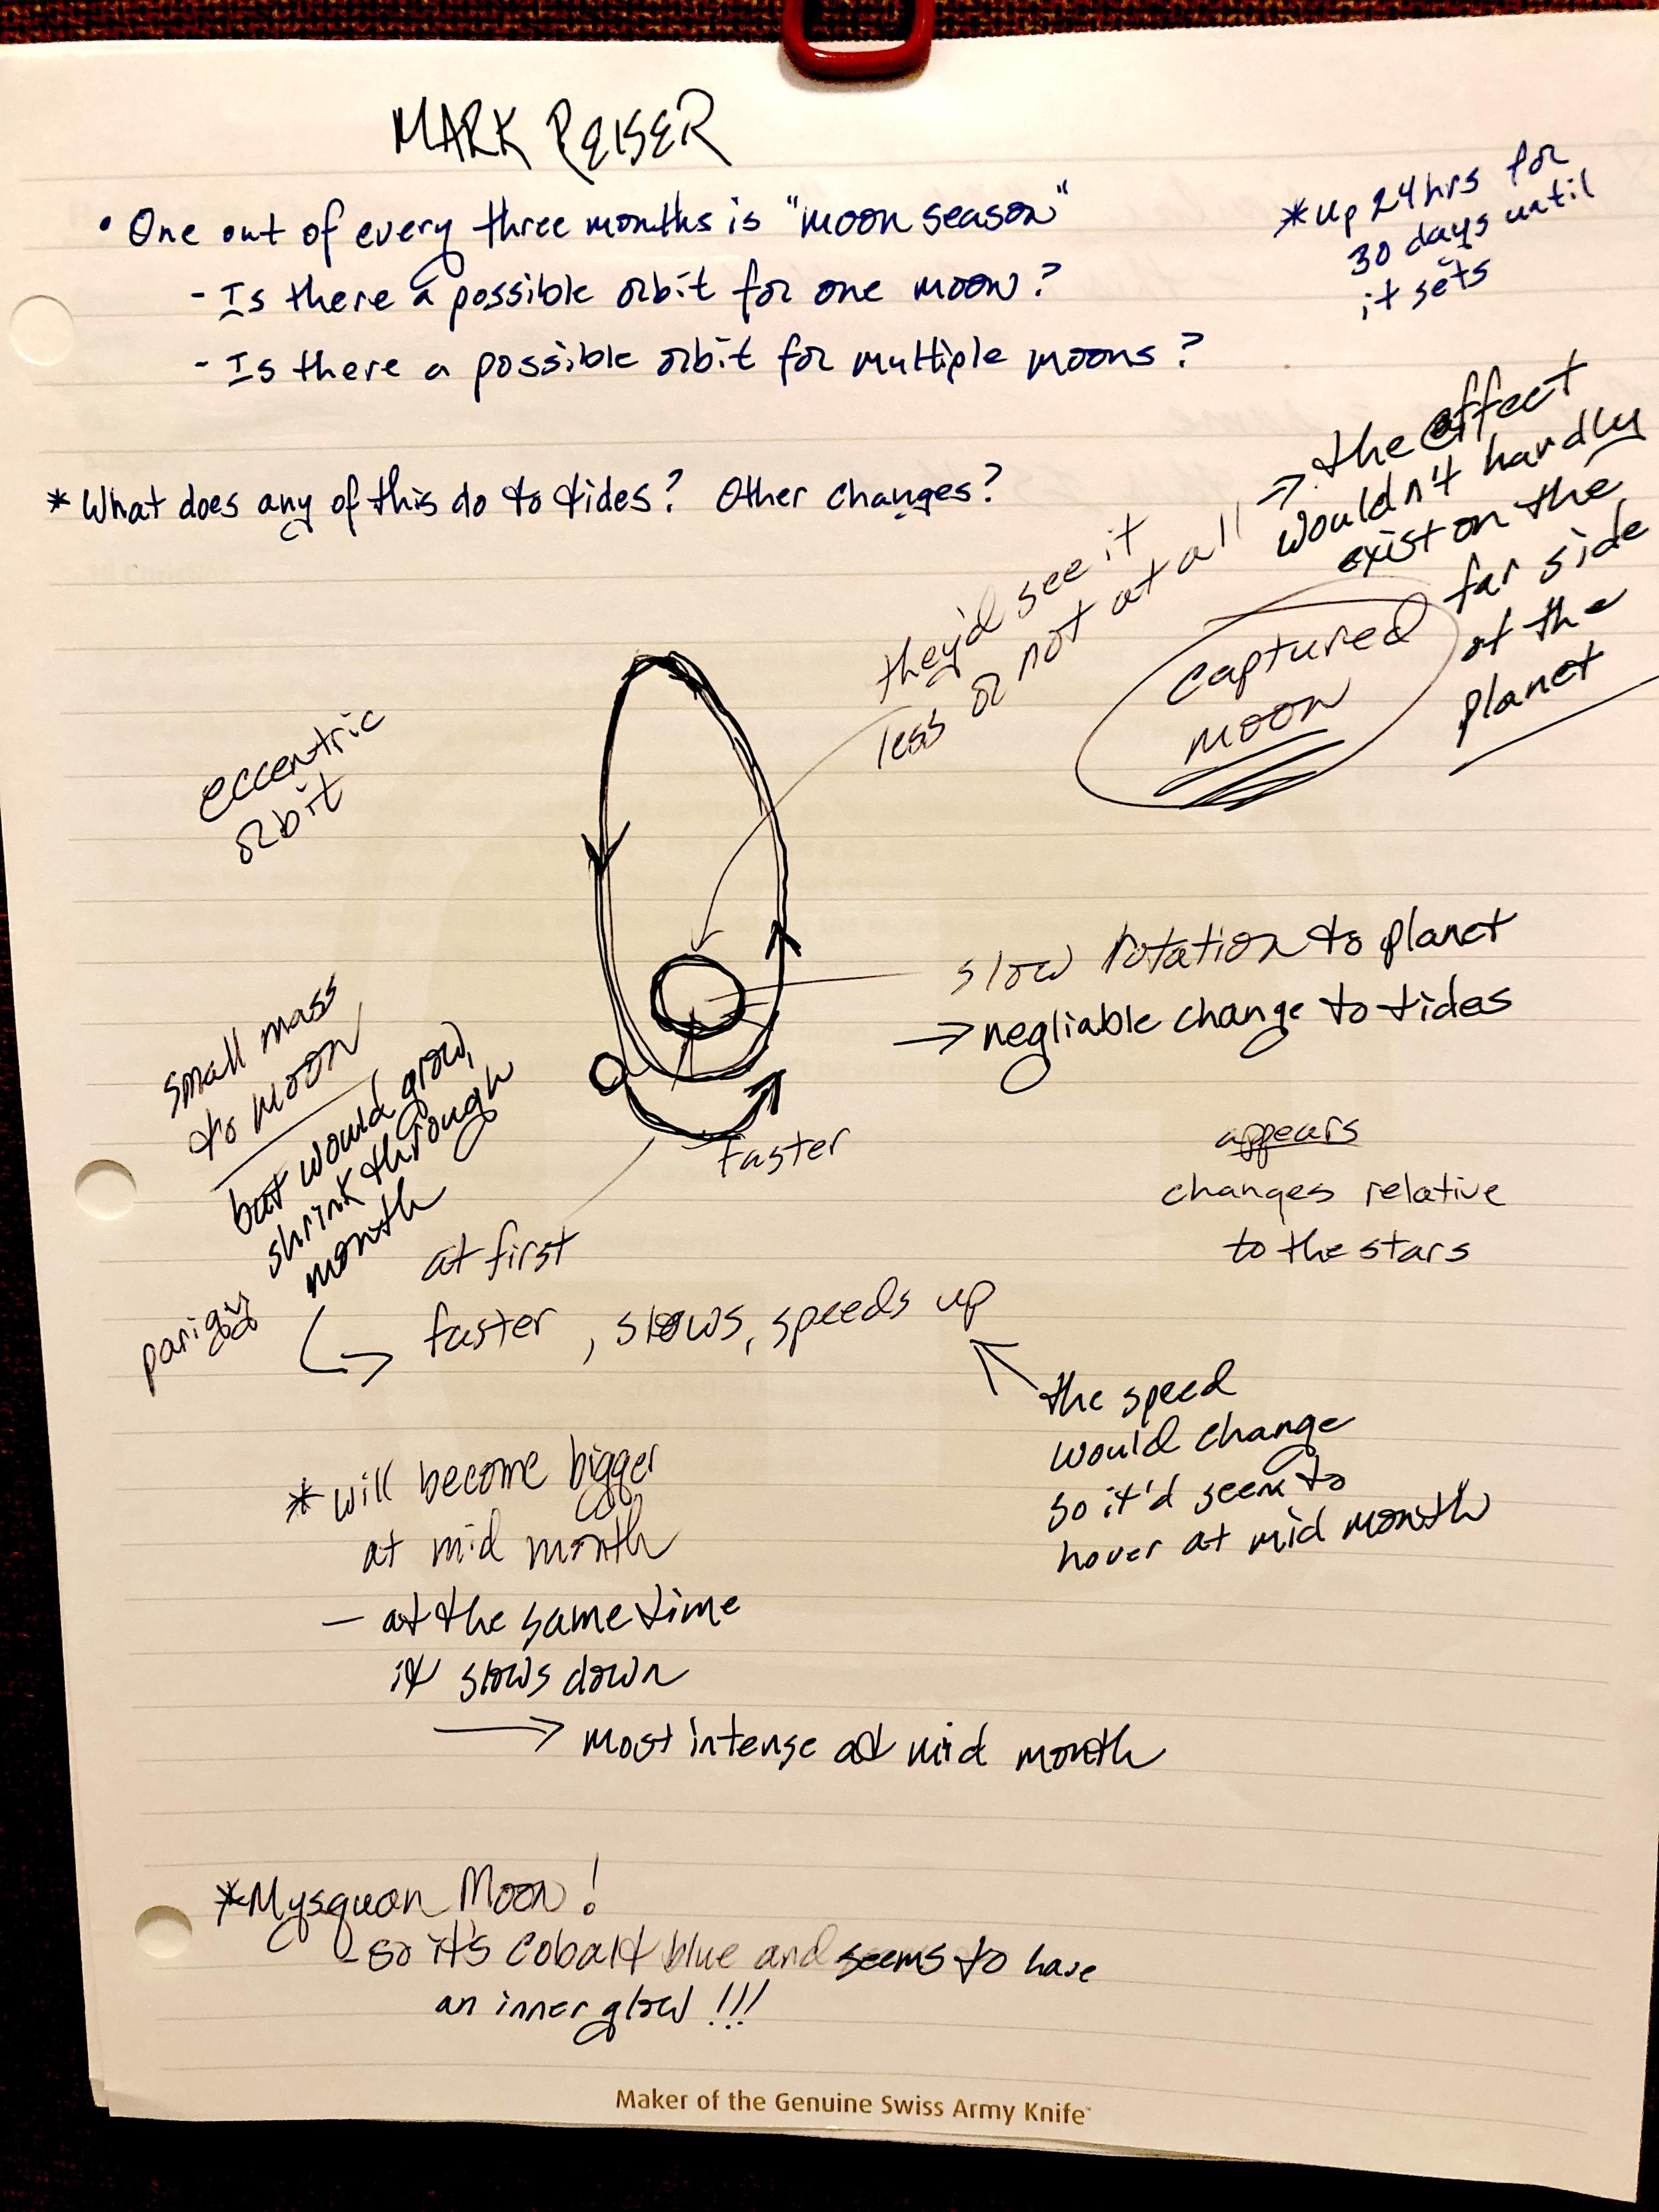 MARK REISER
• One out of every three months is "moon season"
- Is there a possible orbit for one moon?
- Is there a possible orbit for multiple moons?
* up 24hrs for
30 days until
it sets
* What does any of this do to tides? Other changes?
they'd see it
less or not at all
→ the effect
wouldn't hardly
exist on the
far side
of the
planet
captured
moon
eccentric
orbit
slow rotation to planet
→ negliable change to tides
small mass
to moon
but would grow,
shrink through
month
Faster
appears
changes relative
to the stars
at first
faster, slows, speeds up
the speed
would change
so it'd seem to
hover at mid month
* will become bigger
at mid month
- at the same time
it slows down
→ most intense at mid month
* Mysquon Moon!
- so it's cobalt blue and seems to have
an inner glow!!!
Maker of the Genuine Swiss Army Knife™